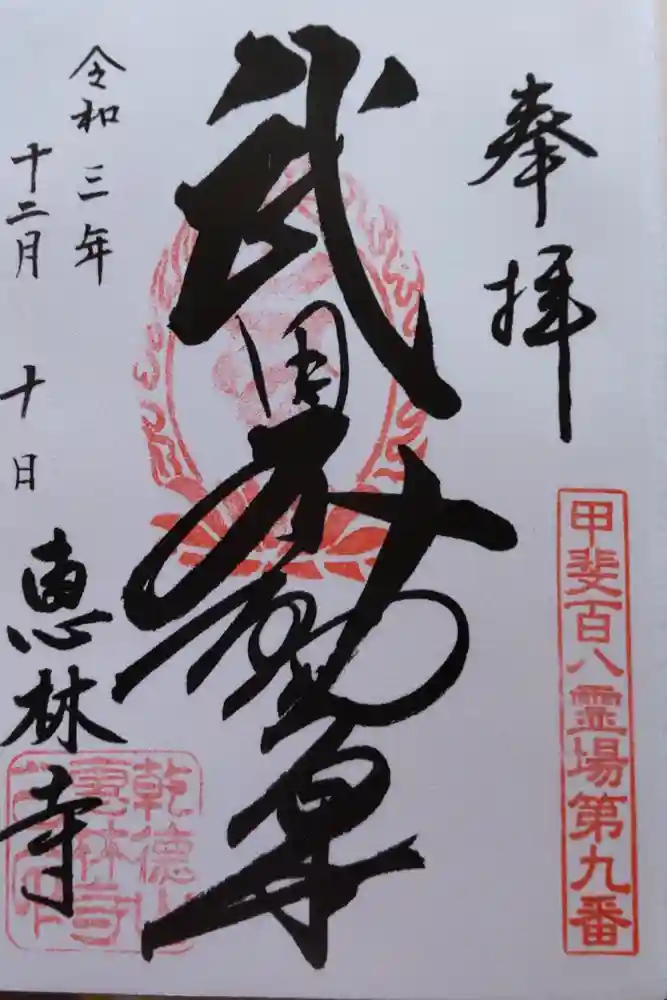 奉拝
甲斐百八霊場第九番
武田不動尊
令和三年
十二月 十日
恵林寺
乾徳山
恵林寺